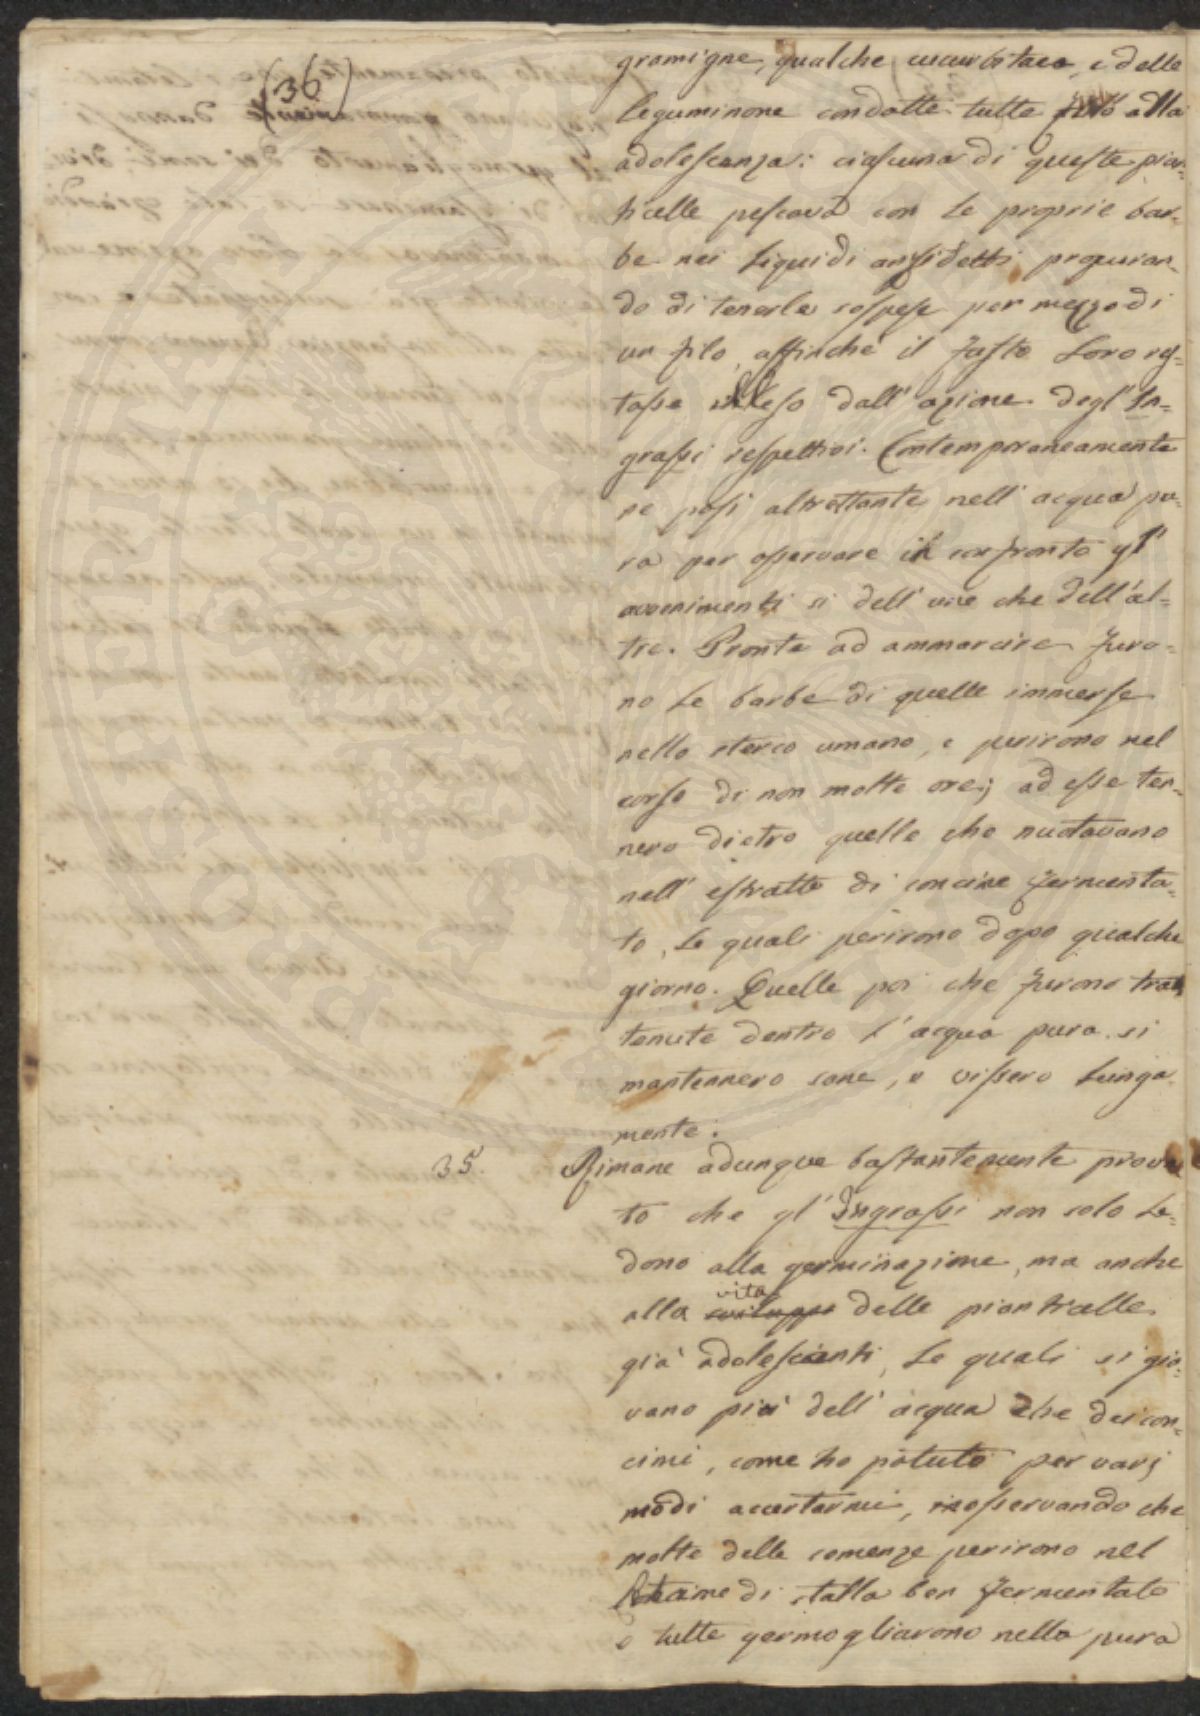 (36)
gramigne, qualche cucurbitaca, e delle
leguminone condotte tutte fino alla
adolescenza: ciascuna di queste pian-
ticelle pescava con le proprie bar-
be nei liquidi anzidetti procuran-
do di tenerle sospese per mezzo di
un filo, affinché il fusto loro res-
tasse illeso dall' azione degl' In-
grassi respettivi. Contemporaneamente
ne posi altrettante nell' acqua pu-
ra per osservare in confronto gl'
avvenimenti sì dell' une che dell' al-
tre. Pronte ad ammarcire furo-
no le barbe di quelle immerse
nello sterco umano, e perirono nel
corso di non molte ore; ad esse ten-
nero dietro quelle che nuotavano
nell' estratto di concime fermenta-
to, le quali perirono dopo qualche
giorno. Quelle poi che furono trat
tenute dentro l' acqua pura si
mantennero sane, e vissero lunga
mente.
35. Rimane adunque bastantemente prova
to che gl' Ingrassi non solo le-
dono alla germinazione, ma anche
alla vita sviluppo delle pianticelle
già adolescenti, le quali si gio-
vano più dell' acqua che dei con-
cimi, come ho potuto per varj
modi accertarmi, osservando che
molte delle semenze perirono nel
letame di stalla ben fermentato
e tutte germogliarono nella pura